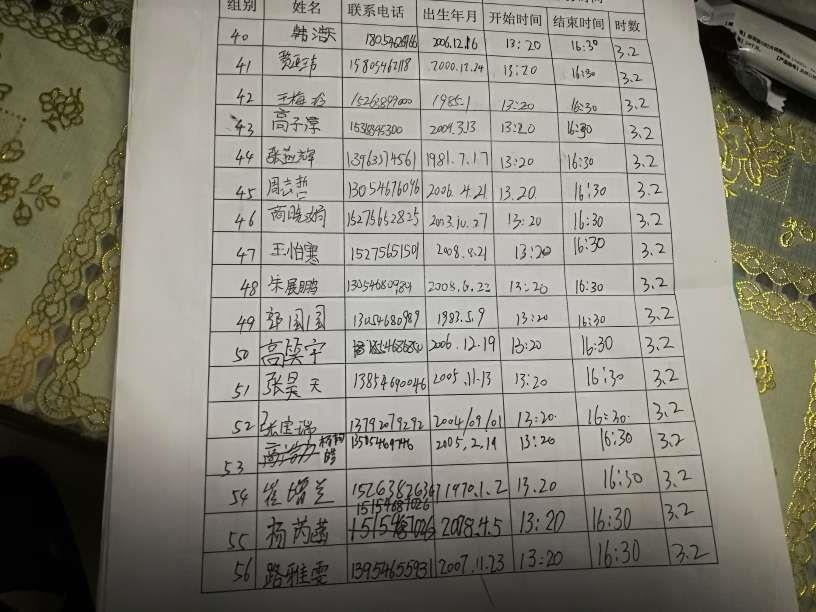 组别 姓名 联系电话 出生年月 开始时间 结束时间 时数
40 韩浩天 2006.12.16 13:20 16:30 3.2
41 15805462118 2000.12.24 13:20 16:30 3.2
42 王梅玲 15263899000 1985.1 13:20 16:30 3.2
43 高子淳 2004.3.13 13:20 16:30 3.2
44 张益辉 13963374561 1981.7.17 13:20 16:30 3.2
45 周云哲 13054676046 2006.4.21 13.20 16:30 3.2
46 商晓娟 15275652825 2003.10.27 13:20 16:30 3.2
47 王怡骞 15275651501 2008.8.21 13:20 16:30 3.2
48 朱展鹏 13054680989 2008.6.22 13:20 16:30 3.2
49 郭国国 13054680989 1983.5.9 13:20 16:30 3.2
50 高笑宇 2006.12.19 13:20 16:30 3.2
51 张昊天 13854690046 2005.11.13 13:20 16:30 3.2
52 张宝瑞 13792079292 2004/09/01 13:20 16:30 3.2
53 2005.2.19 13:20 16:30 3.2
54 崔增兰 15263826367 1970.1.2 13.20 16:30 3.2
15154687026
55 杨芮菡 2008.4.5 13:20 16:30 3.2
56 路雅雯 13954655931 2007.11.23 13:20 16:30 3.2